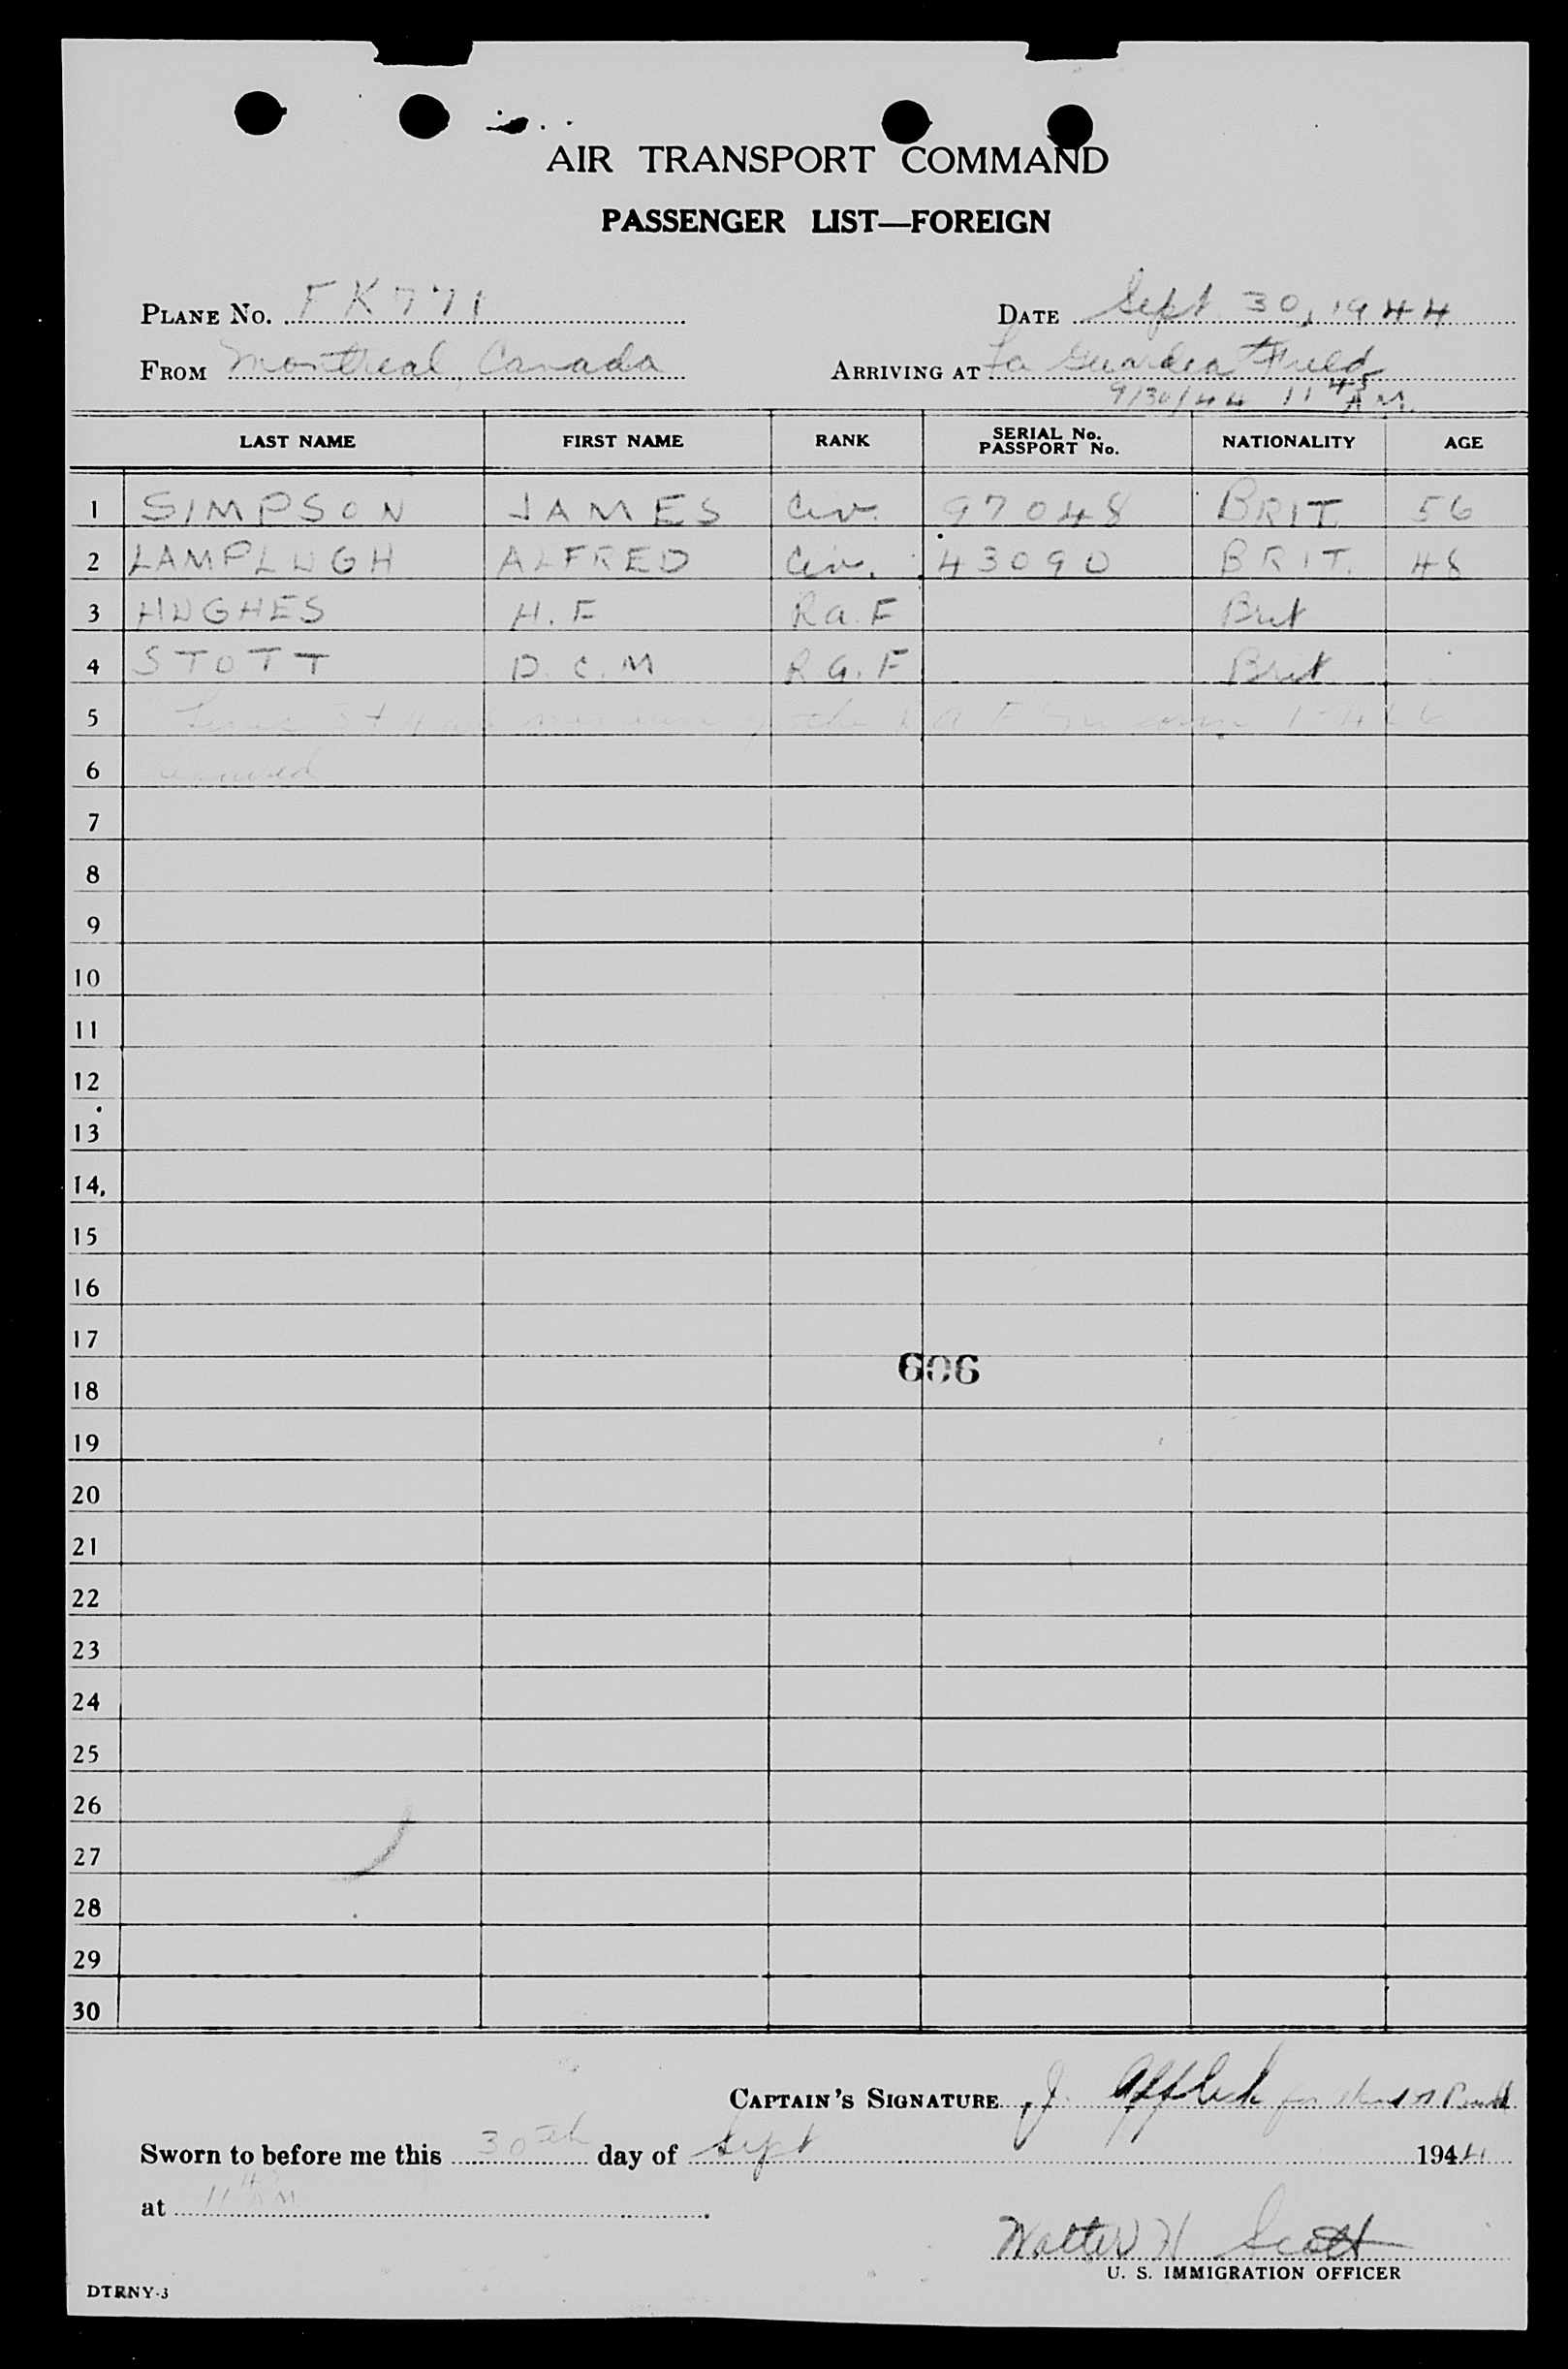 AIR TRANSPORT COMMAND
PASSENGER LIST—FOREIGN
PLANE No. FK771 DATE Sept 30, 1944
FROM Montreal, Canada ARRIVING AT La Guardia Field
9/30/44 11 45 A.M.
LAST NAME FIRST NAME RANK SERIAL No. PASSPORT No. NATIONALITY AGE
1 SIMPSON JAMES Civ. 97048 BRIT. 56
2 LAMPLUGH ALFRED Civ. 43090 BRIT. 48
3 HUGHES H. F R a. F Brit
4 STOTT D. C. M R a. F Brit
5 Lines 3 + 4 are the R A F
6
7
8
9
10
11
12
13
14.
15
16
17
606
18
19
20
21
22
23
24
25
26
27
28
29
30
CAPTAIN'S SIGNATURE J. Affleck for
Sworn to before me this 30th day of Sept 1944
at 11 45 AM
Walter H Scott
U. S. IMMIGRATION OFFICER
DTRNY-3